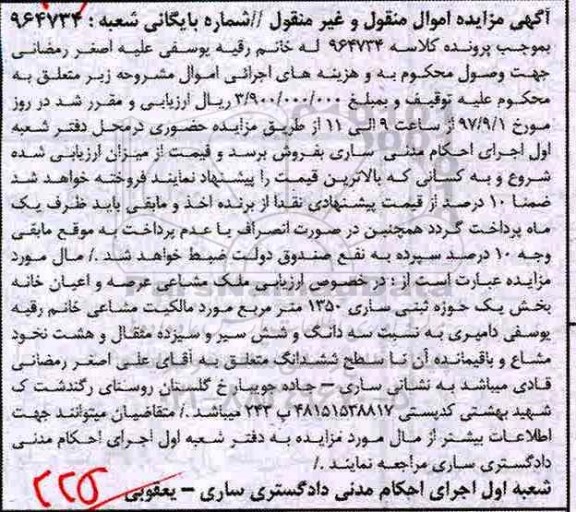 آگهی مزایده اموال منقول و غیر منقول //شماره بایگانی شعبه : ۹۶۴۷۳۴
بموجب پرونده کلاسه ۹۶۴۷۳۴ له خانم رقیه یوسفی علیه اصغر رمضانی
جهت وصول محکوم به و هزینه های اجرائی اموال مشروحه زیر متعلق به
محکوم علیه توقیف و بمبلغ ۳/۹۰۰/۰۰۰/۰۰۰ ریال ارزیابی و مقرر شد در روز
مورخ ۹۷/۹/۱ از ساعت ۹ الی ۱۱ از طریق مزایده حضوری درمحل دفتر شعبه
اول اجرای احکام مدنی ساری بفروش برسد و قیمت از میزان ارزیابی شده
شروع و به کسانی که بالاترین قیمت را پیشنهاد نمایند فروخته خواهد شد
ضمنا ۱۰ درصد از قیمت پیشنهادی نقدا از برنده اخذ و مابقی باید ظرف یک
ماه پرداخت گردد همچنین در صورت انصراف یا عدم پرداخت به موقع مابقی
وجه ۱۰ درصد سپرده به نفع صندوق دولت ضبط خواهد شد ./ مال مورد
مزایده عبارت است از : در خصوص ارزیابی ملک مشاعی عرصه و اعیان خانه
بخش یک حوزه ثبتی ساری ۱۳۵۰ متر مربع مورد مالکیت مشاعی خانم رقیه
یوسفی دامیری به نسبت سه دانگ و شش سیر و سیزده مثقال و هشت نخود
مشاع و باقیمانده آن تا سطح ششدانگ متعلق به آقای علی اصغر رمضانی
قادی میباشد به نشانی ساری – جاده جویبارخ گلستان روستای رگندشت ک
شهید بهشتی کدپستی ۴۸۱۵۱۵۳۸۸۱۷ پ ۲۴۳ میباشد ./ متقاضیان میتوانند جهت
اطلاعات بیشتر از مال مورد مزایده به دفتر شعبه اول اجرای احکام مدنی
دادگستری ساری مراجعه نمایند ./
شعبه اول اجرای احکام مدنی دادگستری ساری – یعقوبی
۲۲۵